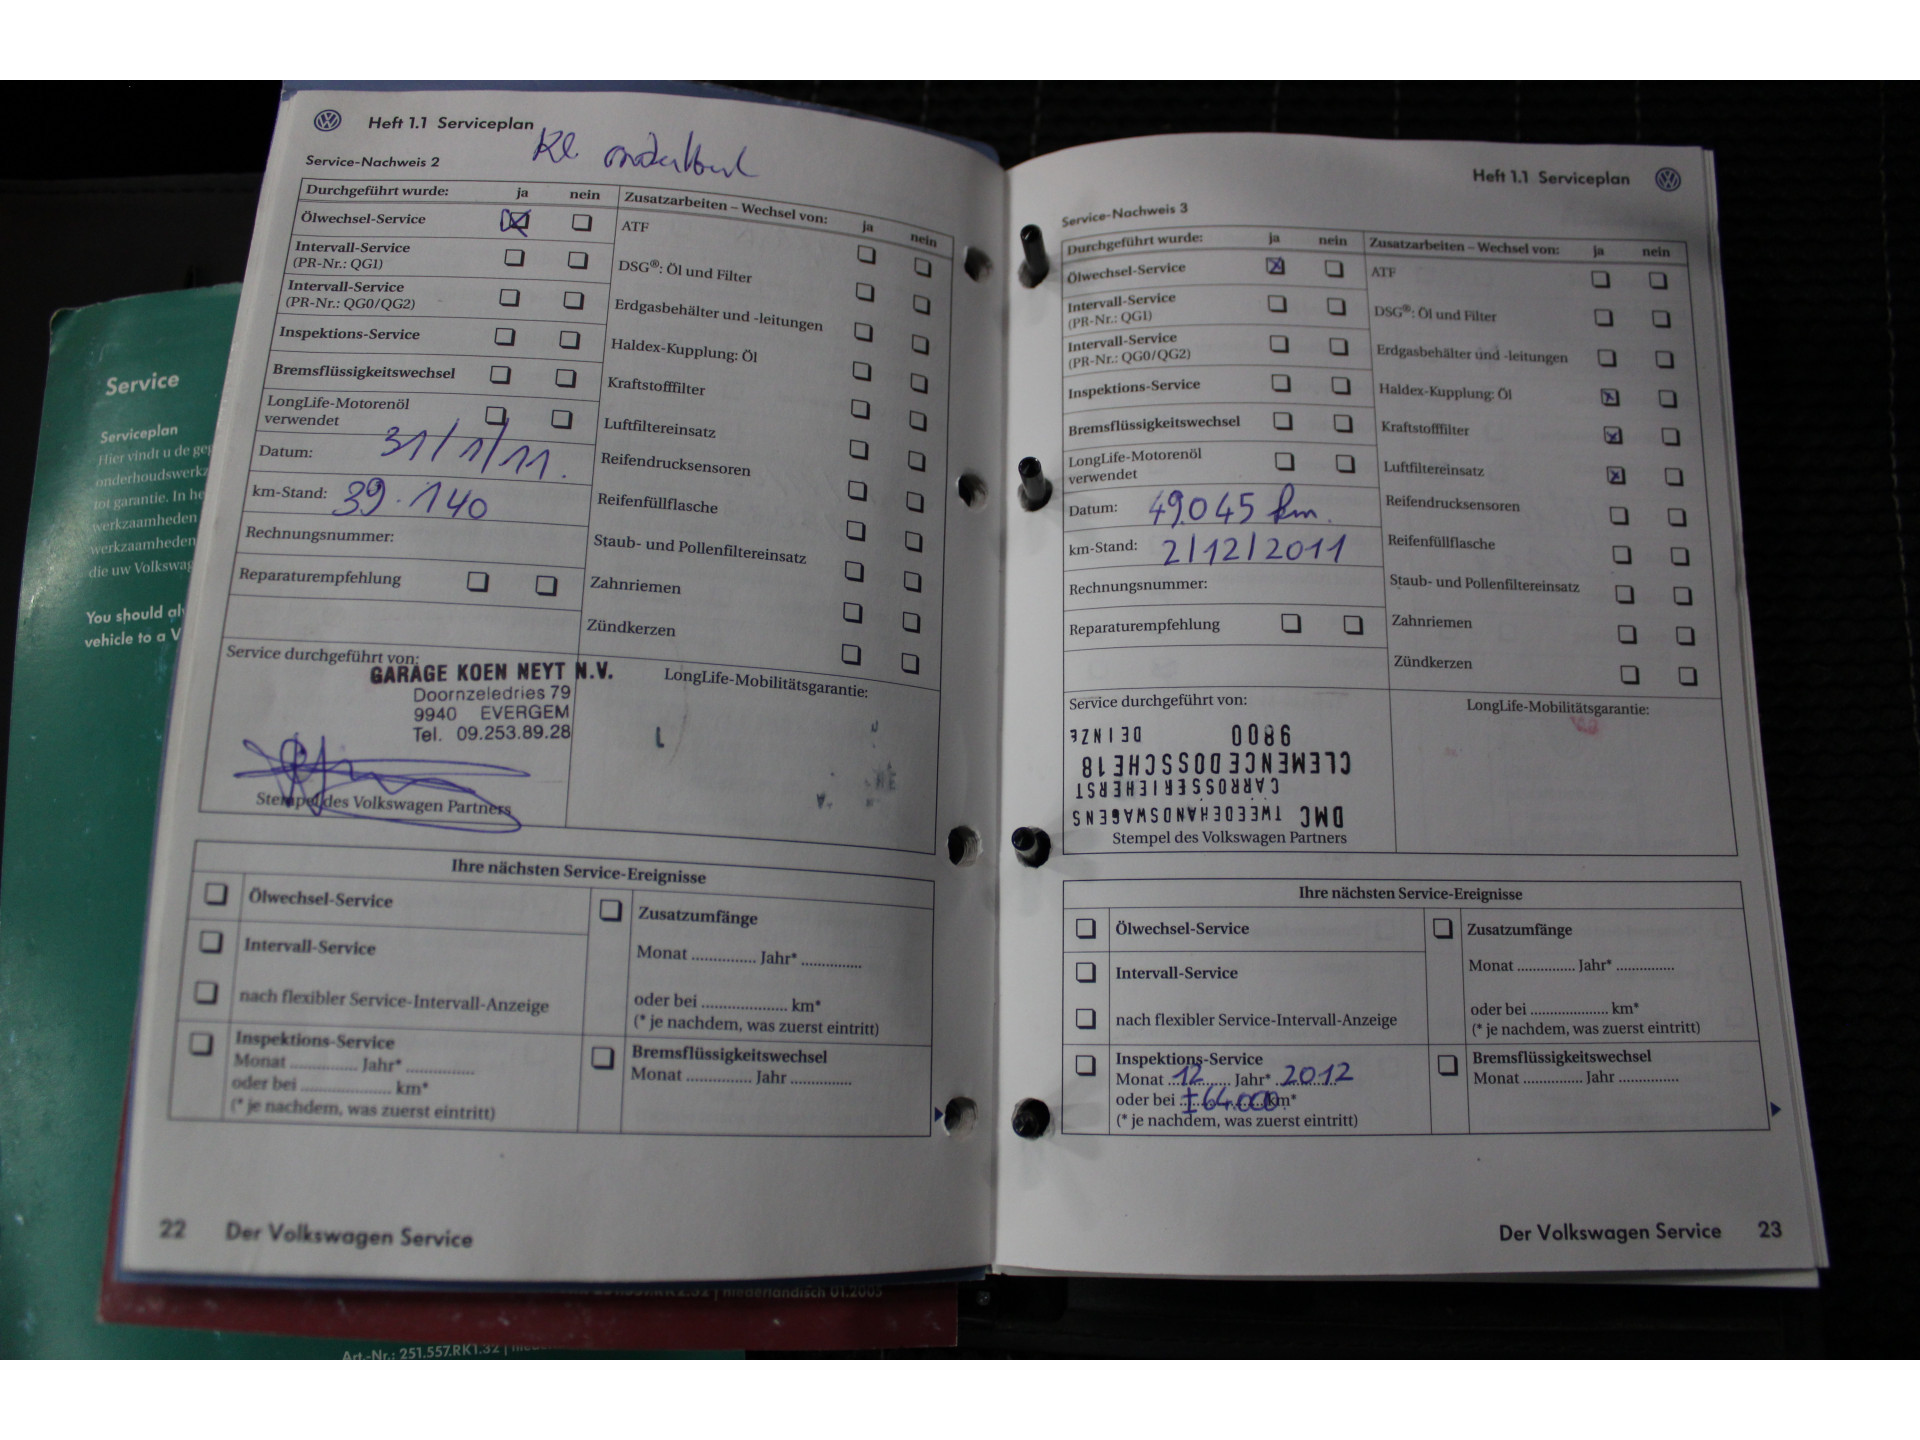 Heft 1.1 Serviceplan
Service-Nachweis 2
Kl. onderhoud
Durchgeführt wurde: ja nein
Ölwechsel-Service
Intervall-Service
(PR-Nr.: QG1)
Intervall-Service
(PR-Nr.: QG0/QG2)
Inspektions-Service
Bremsflüssigkeitswechsel
LongLife-Motorenöl
verwendet
Datum: 31/1/11.
km-Stand: 39.140
Rechnungsnummer:
Reparaturempfehlung
Zusatzarbeiten – Wechsel von: ja nein
ATF
DSG®: Öl und Filter
Erdgasbehälter und -leitungen
Haldex-Kupplung: Öl
Kraftstofffilter
Luftfiltereinsatz
Reifendrucksensoren
Reifenfüllflasche
Staub- und Pollenfiltereinsatz
Zahnriemen
Zündkerzen
Service durchgeführt von:
GARAGE KOEN NEYT N.V.
Doornzeledries 79
9940 EVERGEM
Tel. 09.253.89.28
Stempel des Volkswagen Partners
LongLife-Mobilitätsgarantie:
Ihre nächsten Service-Ereignisse
Ölwechsel-Service
Intervall-Service
nach flexibler Service-Intervall-Anzeige
Inspektions-Service
Monat ............... Jahr* ...............
oder bei .................... km*
(* je nachdem, was zuerst eintritt)
Zusatzumfänge
Monat ............... Jahr* ..............
oder bei .................... km*
(* je nachdem, was zuerst eintritt)
Bremsflüssigkeitswechsel
Monat ............... Jahr ..............
22 Der Volkswagen Service
Heft 1.1 Serviceplan
Service-Nachweis 3
Durchgeführt wurde: ja nein
Ölwechsel-Service
Intervall-Service
(PR-Nr.: QG1)
Intervall-Service
(PR-Nr.: QG0/QG2)
Inspektions-Service
Bremsflüssigkeitswechsel
LongLife-Motorenöl
verwendet
Datum: 49.045 km.
km-Stand: 2/12/2011
Rechnungsnummer:
Reparaturempfehlung
Zusatzarbeiten – Wechsel von: ja nein
ATF
DSG®: Öl und Filter
Erdgasbehälter und -leitungen
Haldex-Kupplung: Öl
Kraftstofffilter
Luftfiltereinsatz
Reifendrucksensoren
Reifenfüllflasche
Staub- und Pollenfiltereinsatz
Zahnriemen
Zündkerzen
Service durchgeführt von:
DMC TWEEDEHANDSWAGENS
CARROSSERIEHERST
CLEMENCE DOSSCHE 18
9800 DEINZE
Stempel des Volkswagen Partners
LongLife-Mobilitätsgarantie:
Ihre nächsten Service-Ereignisse
Ölwechsel-Service
Intervall-Service
nach flexibler Service-Intervall-Anzeige
Inspektions-Service
Monat 12 Jahr* 2012
oder bei ±64.000 km*
(* je nachdem, was zuerst eintritt)
Zusatzumfänge
Monat ............... Jahr* ...............
oder bei .................... km*
(* je nachdem, was zuerst eintritt)
Bremsflüssigkeitswechsel
Monat ............... Jahr ...............
Der Volkswagen Service 23
Service
Serviceplan
Hier vindt u de
onderhoudswerkz
tot garantie. In he
werkzaamheden
werkzaamheden
die uw Volkswag
You should al
vehicle to a V
niederländisch 01.2005
Art.-Nr.: 251.557.RK1.32